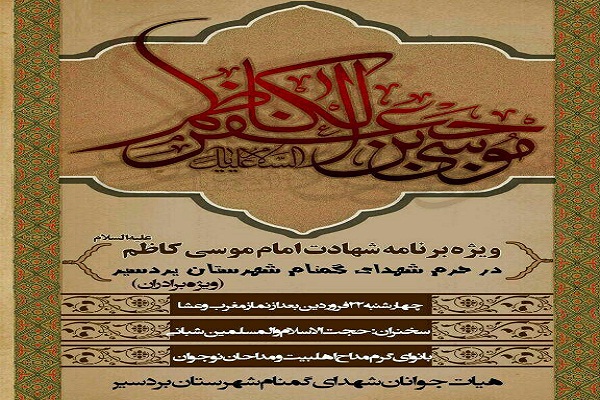 موسی بن جعفر الکاظم
السلام علیک یا
علیه السلام
ویژه برنامه شهادت امام موسی کاظم
در حرم شهدای گمنام شهرستان بردسیر
(ویژه برادران)
چهارشنبه ۲۲ فروردین بعد از نماز مغرب و عشا
سخنران: حجت الاسلام والمسلمین شبانی
بانوای گرم مداح اهلبیت و مداحان نوجوان
هیات جوانان شهدای گمنام شهرستان بردسیر